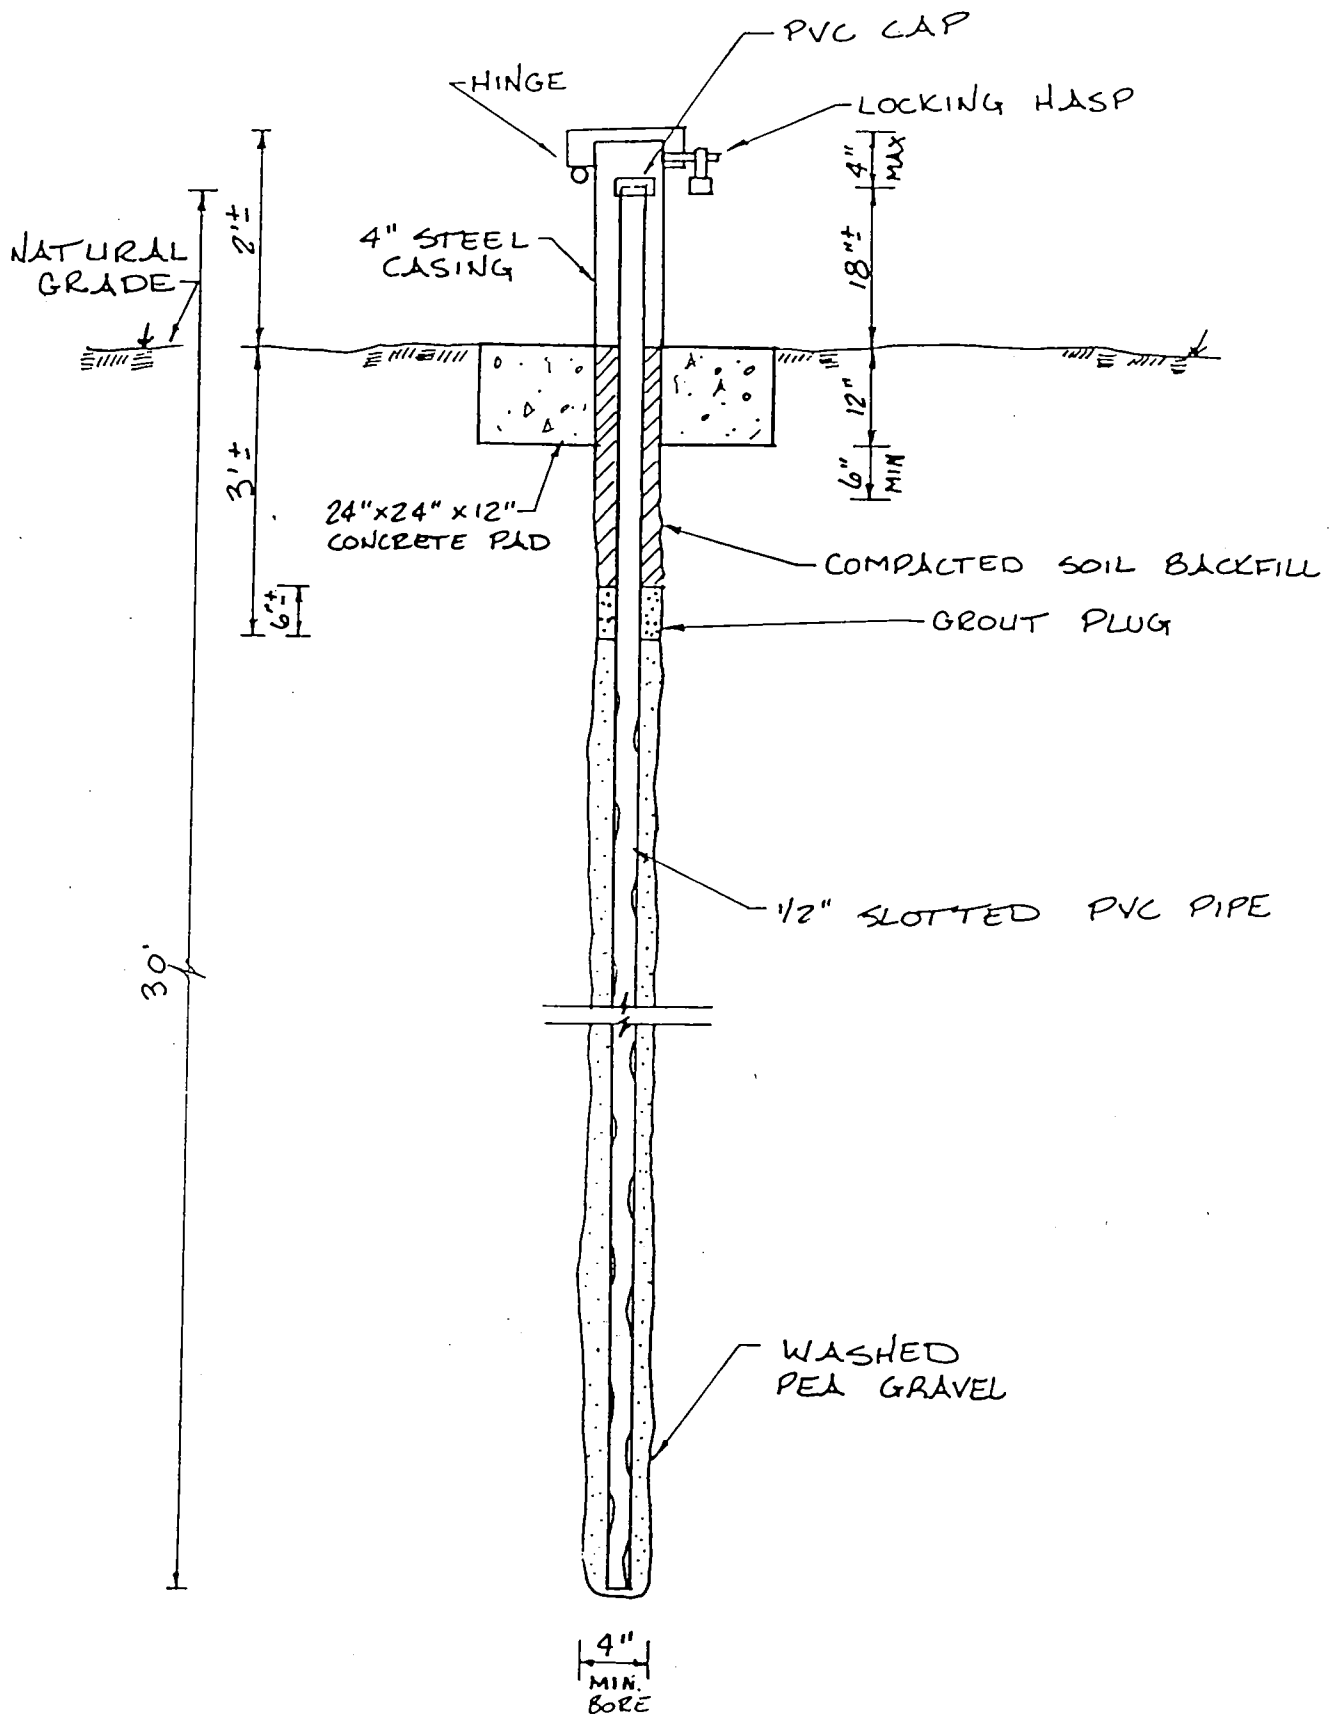 PVC CAP
HINGE
LOCKING HASP
4" MAX
2'±
NATURAL
GRADE
4" STEEL
CASING
18"±
12"
3'±
6" MIN
24"x24"x12"
CONCRETE PAD
COMPACTED SOIL BACKFILL
6"±
GROUT PLUG
1/2" SLOTTED PVC PIPE
30'
WASHED
PEA GRAVEL
4"
MIN.
BORE